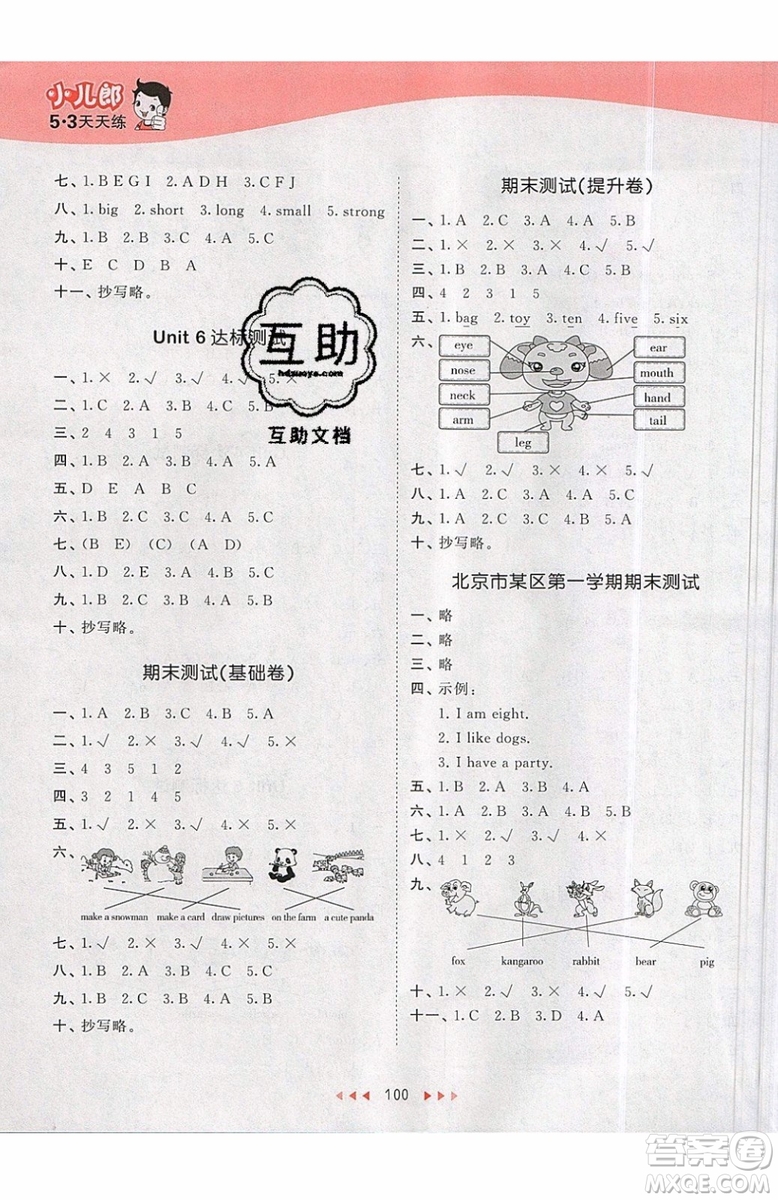 小儿郎
5·3天天练
七、1.B E G I 2.A D H 3.C F J
八、1.big 2.short 3.long 4.small 5.strong
九、1.B 2.A 3.A 4.B 5.C
十、E C D B A
十一、抄写略。
Unit 6 达标测试
一、1.× 2.√ 3.√ 4.√ 5.×
二、1.C 2.B 3.A 4.C 5.B
三、2 4 3 1 5
四、1.B 2.B 3.A 4.A 5.A
五、D E A B C
六、1.B 2.C 3.C 4.A 5.C
七、(B E) (C) (A D)
八、1.B 2.A 3.A 4.B 5.C
九、1.B 2.B 3.A 4.A 5.B
十、抄写略。
期末测试(基础卷)
一、1.A 2.B 3.C 4.B 5.A
二、1.√ 2.× 3.√ 4.√ 5.×
三、4 3 5 1 2
四、3 2 1 4 5
五、1.√ 2.× 3.√ 4.√ 5.×
六、
make a snowman make a card draw pictures on the farm a cute panda
七、1.√ 2.× 3.√ 4.× 5.×
八、1.B 2.A 3.C 4.B 5.C
九、1.B 2.A 3.A 4.B 5.A
十、抄写略。
期末测试(提升卷)
一、1.A 2.C 3.A 4.A 5.B
二、1.× 2.× 3.× 4.√ 5.√
三、1.B 2.C 3.B 4.C 5.A
四、4 2 3 1 5
五、1.bag 2.toy 3.ten 4.five 5.six
六、
eye
nose
neck
arm
leg
ear
mouth
hand
tail
七、1.√ 2.√ 3.× 4.× 5.√
八、1.A 2.C 3.A 4.B 5.C
九、1.A 2.B 3.A 4.B 5.A
十、抄写略。
北京市某区第一学期期末测试
一、略
二、略
三、略
四、示例：
1. I am eight.
2. I like dogs.
3. I have a party.
五、1.B 2.A 3.B 4.A
六、1.A 2.B 3.A 4.B 5.B
七、1.× 2.√ 3.√ 4.× 5.√
八、4 1 2 3
九、
fox kangaroo rabbit bear pig
十、1.× 2.√ 3.× 4.√ 5.√
十一、1.C 2.B 3.D 4.A
100
互助
hdzuoye.com
互助文档
答案圈
MXQE.COM